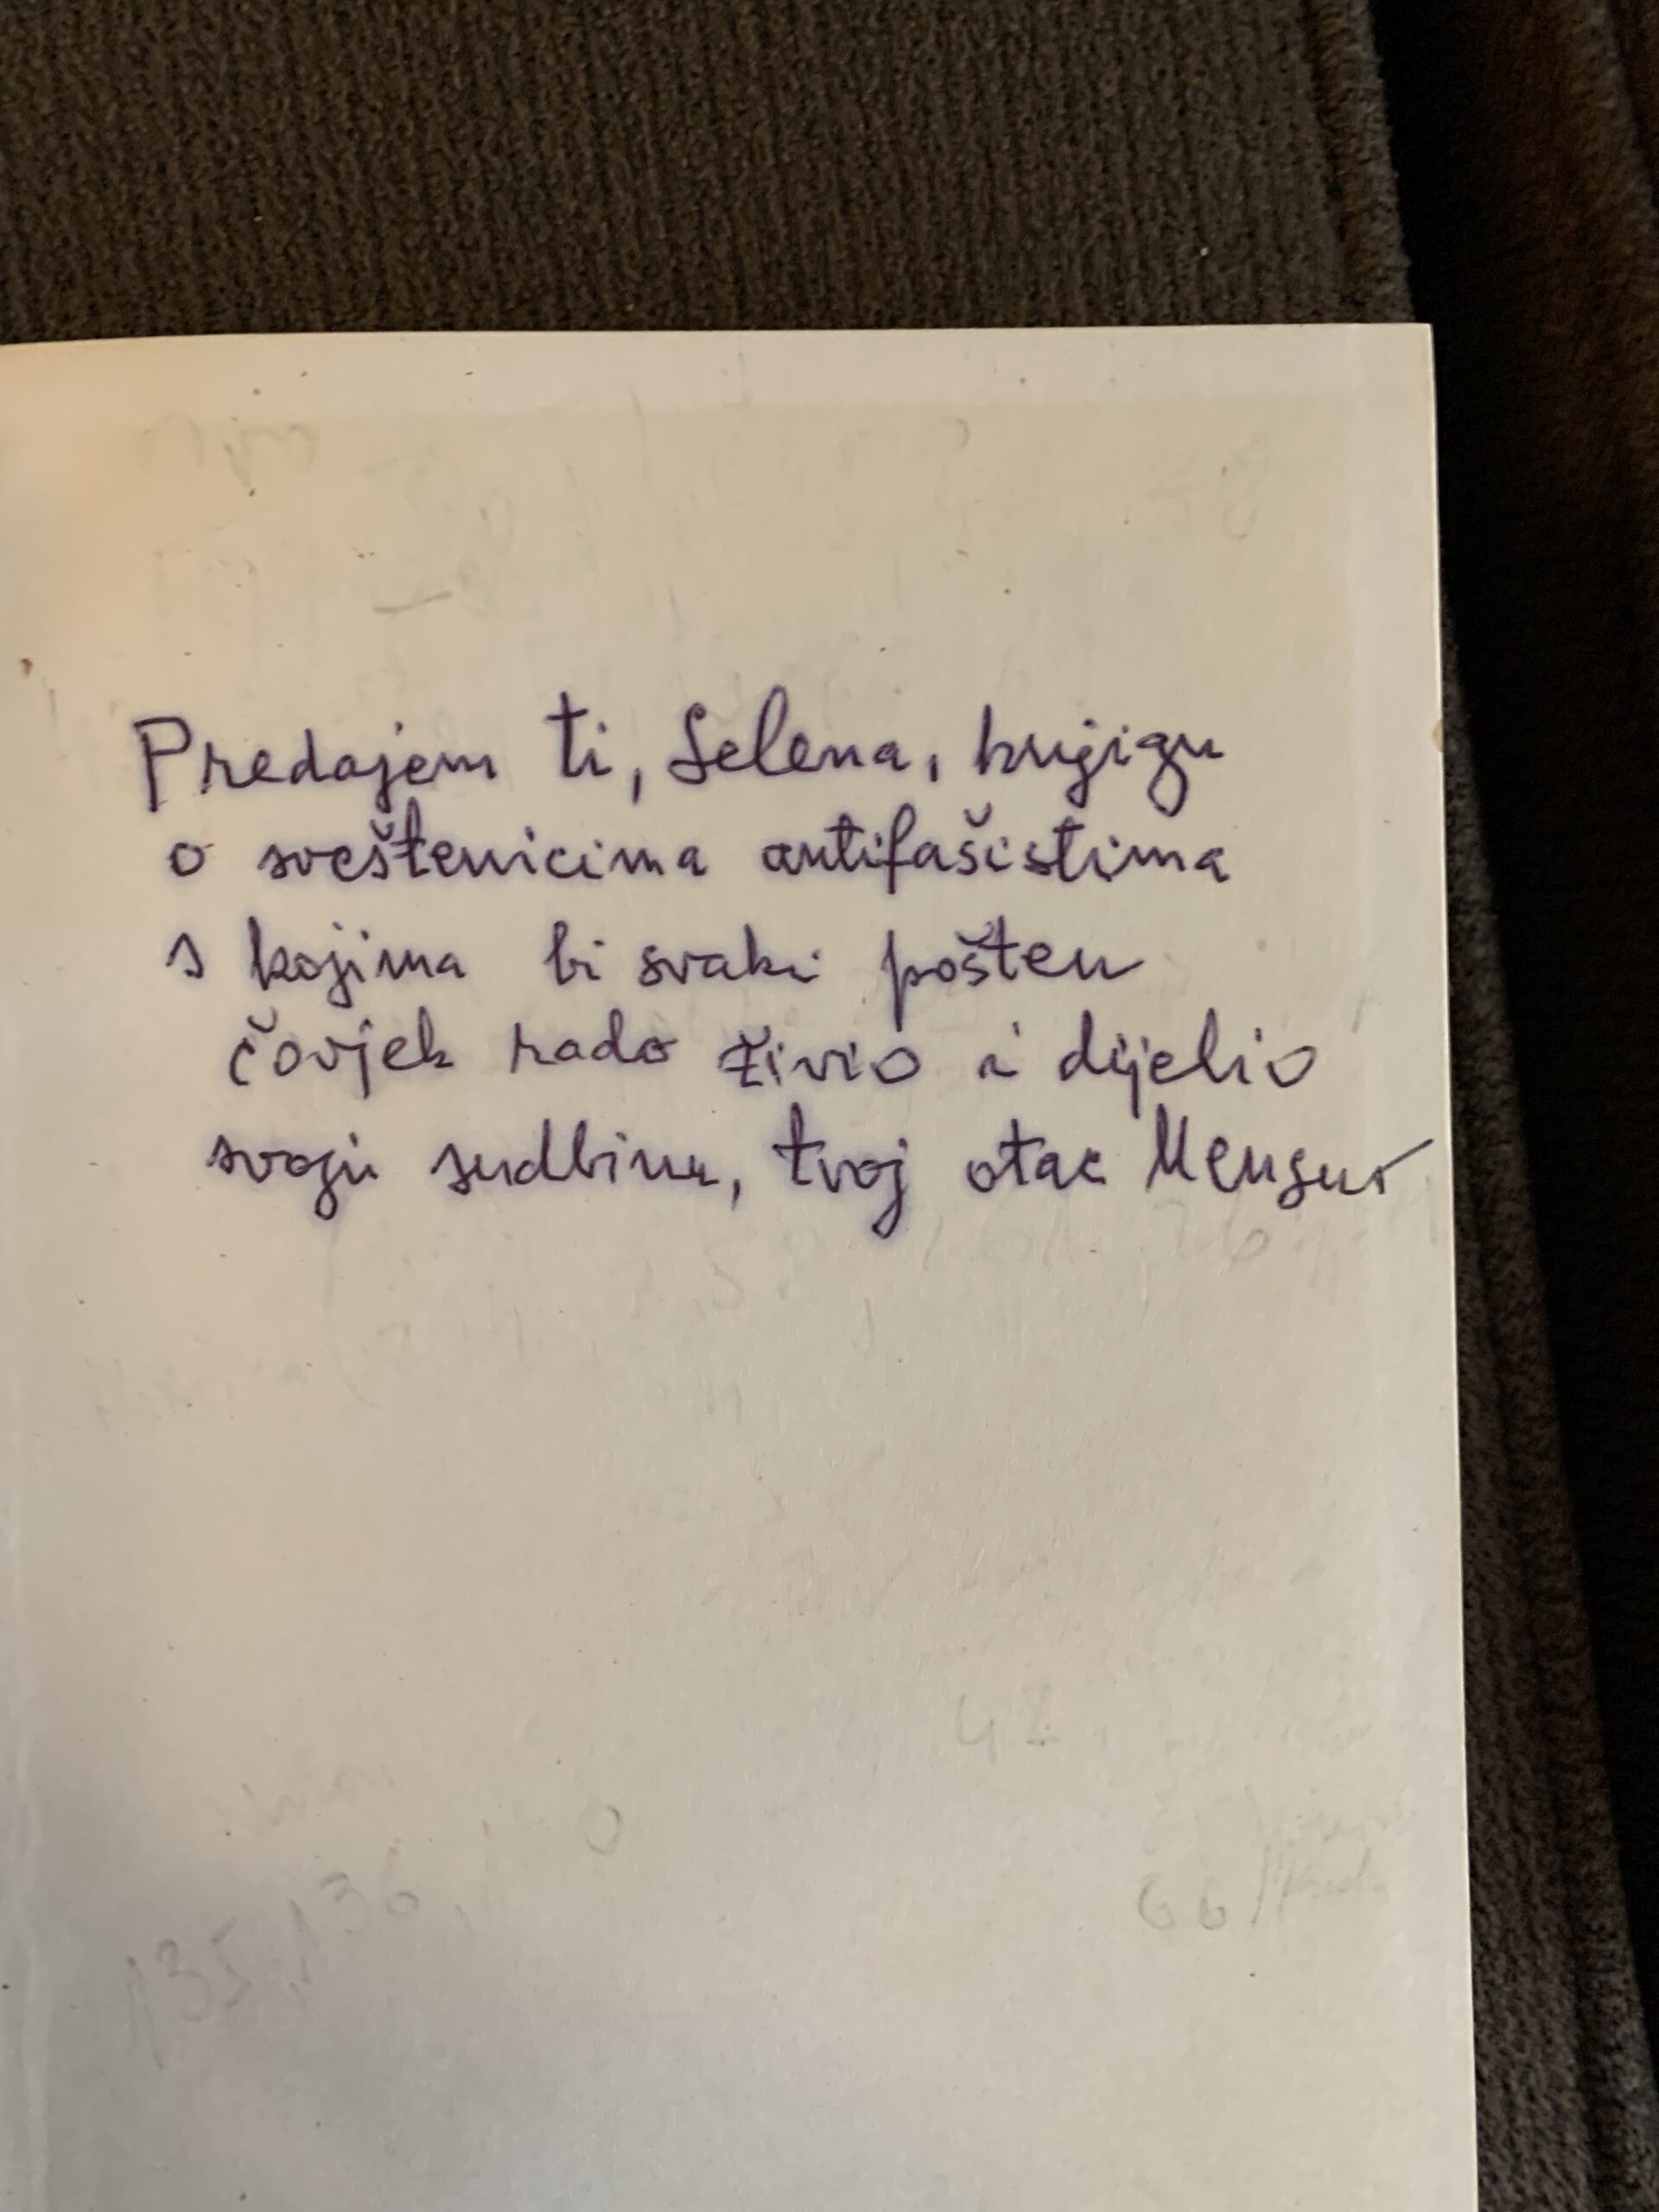 Predajem ti, Selena, knjigu
o sveštenicima antifašistima
s kojima bi svaki pošten
čovjek rado živio i dijelio
svoju sudbinu, tvoj otac Mensur
42
66
135, 136,